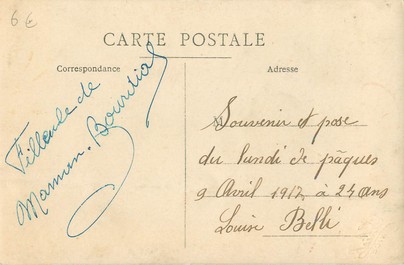 6€
CARTE POSTALE
Correspondance
Adresse
Filleule de
Maman. Bourdial
Souvenir et pose
du lundi de pâques
9 Avril 1912 à 24 ans
Louise Belli